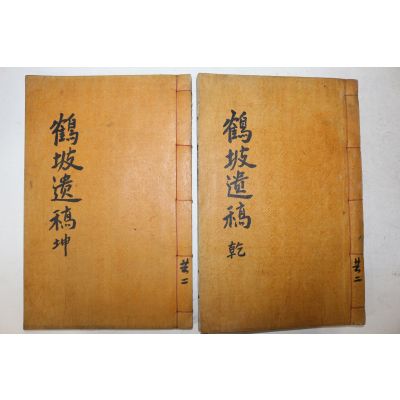 鶴坡遺稿 坤
共二
鶴坡遺稿 乾
共二